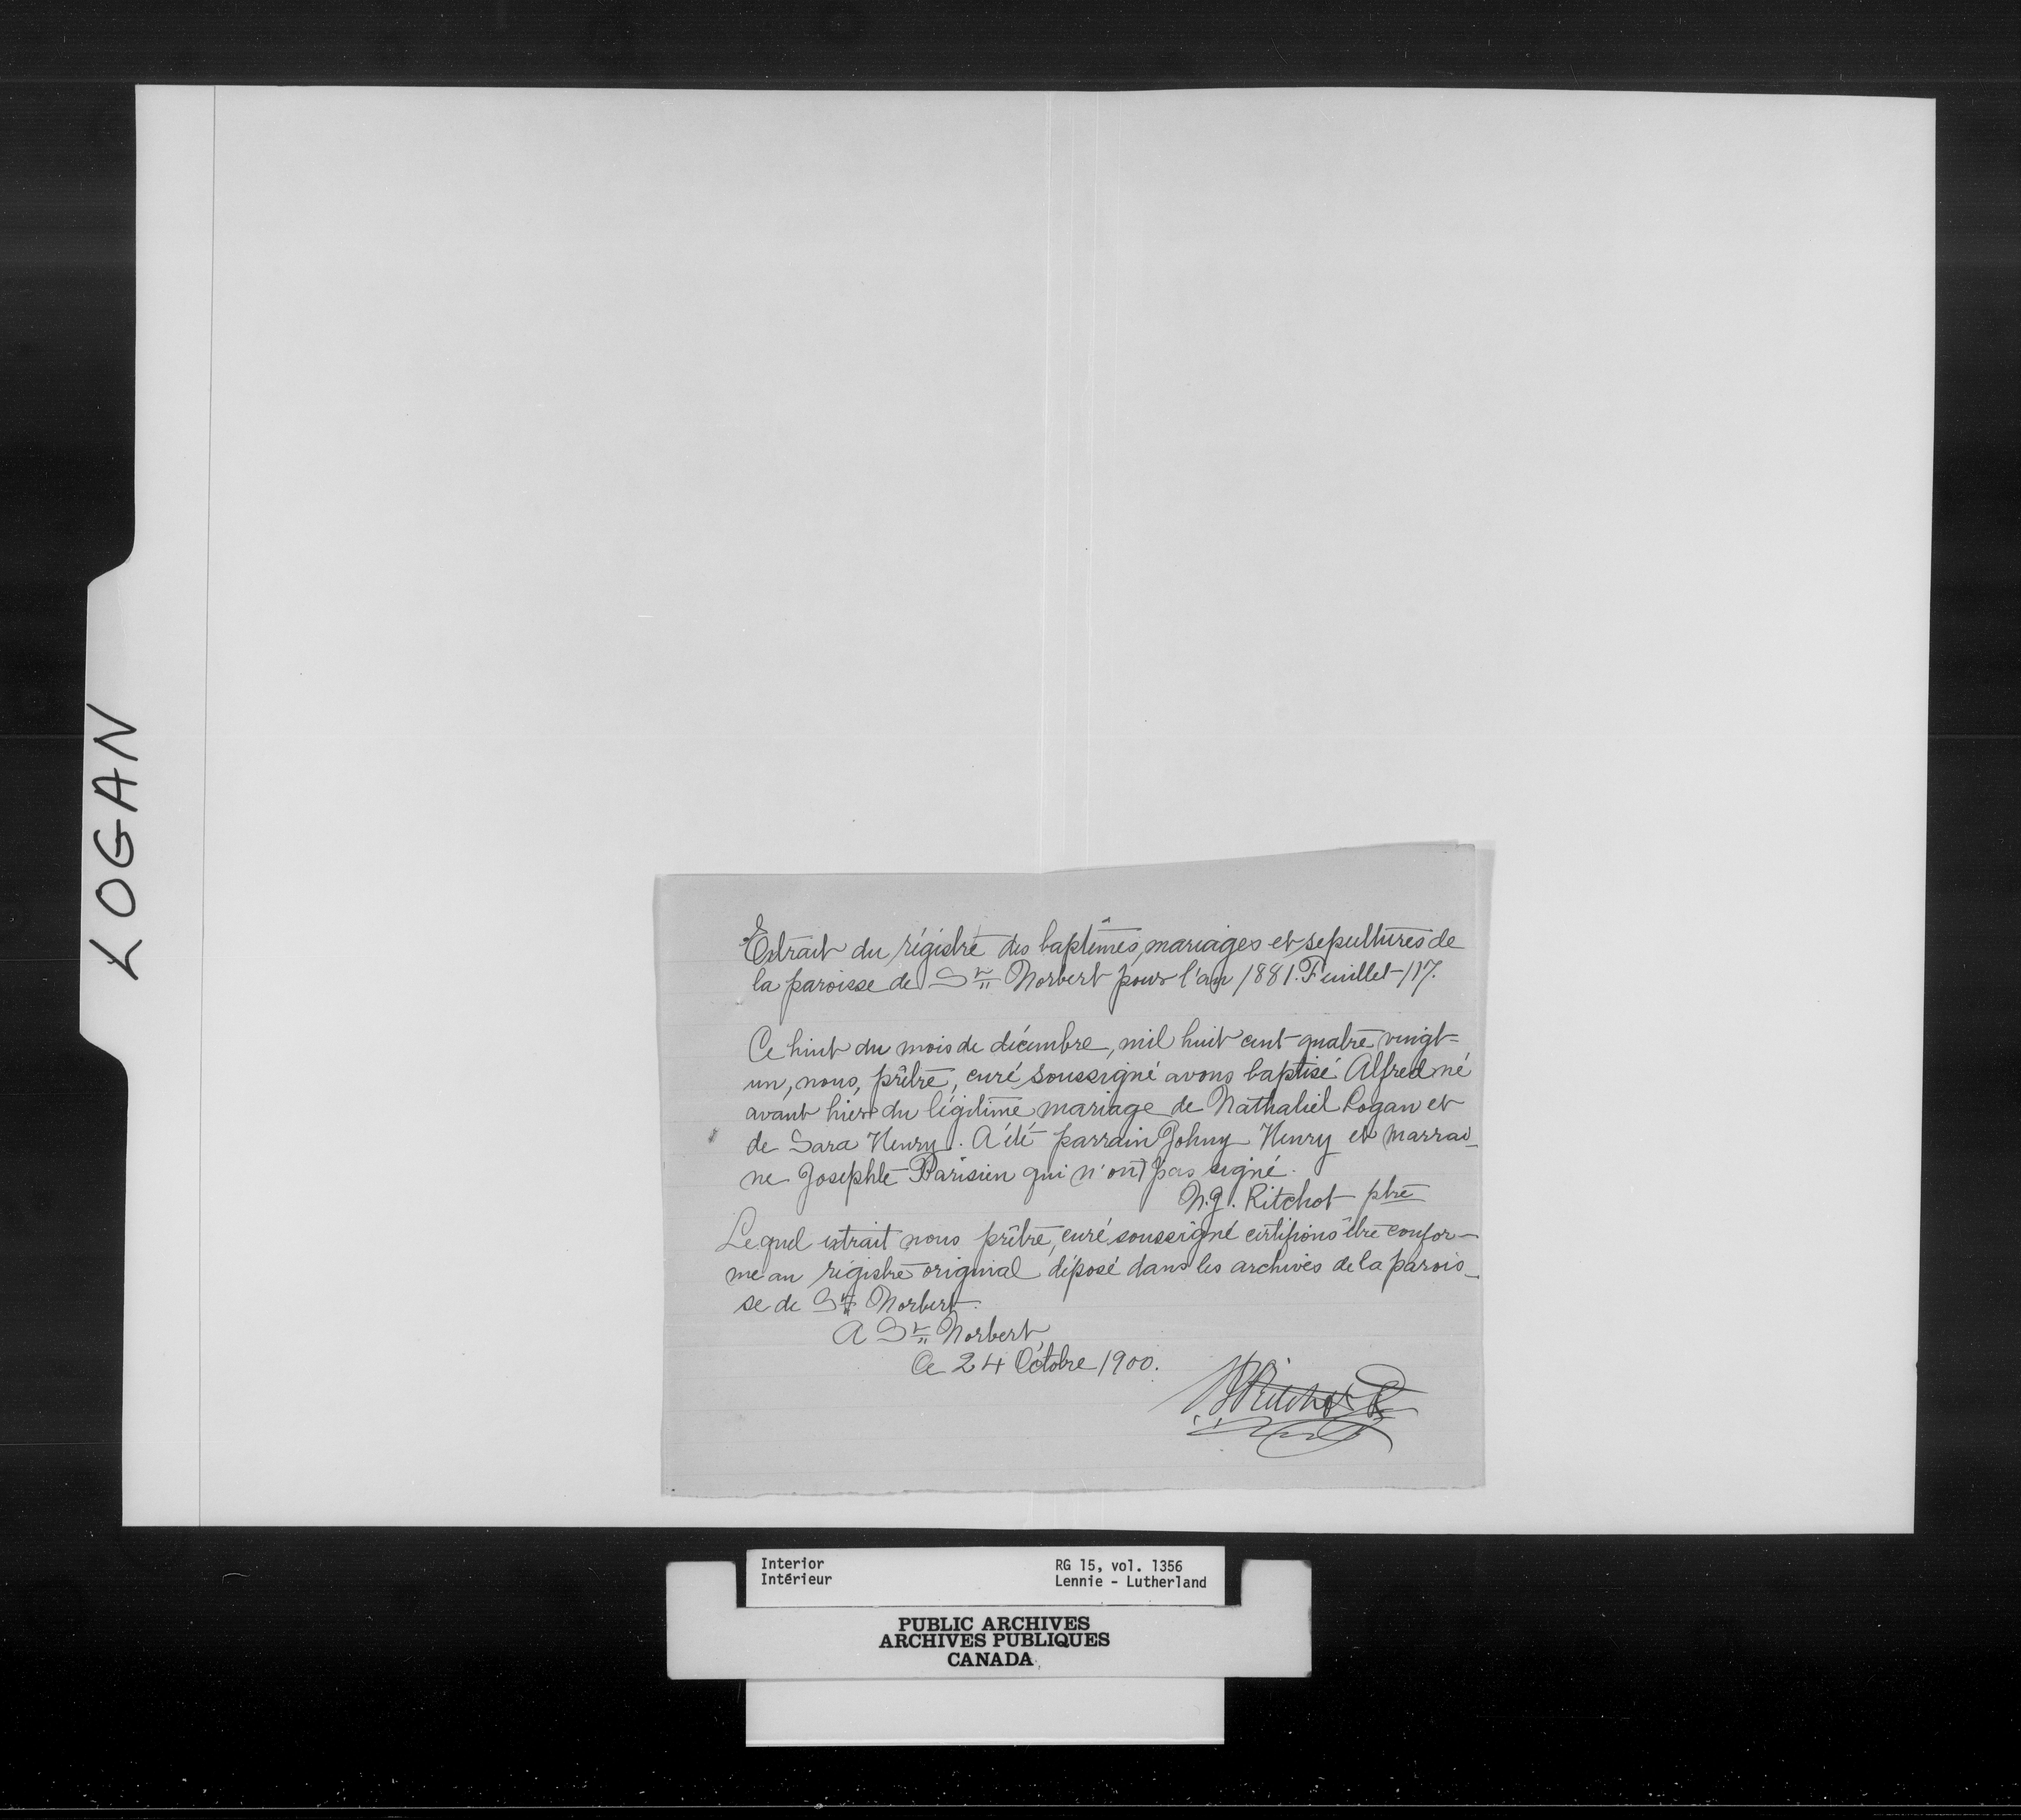 LOGAN
Extrait du régistre des baptêmes, mariages et sepultures de
la paroisse de St Norbert pour l'an 1881. Feuillet 117.
Ce huit du mois de décembre, mil huit cent quatre vingt-
un, nous, prêtre, curé soussigné avons baptisé Alfred né
avant hier du légitime mariage de Nathaliel Logan et
de Sara Henry. A été parrain Johny Henry et marrai-
ne Josephte Parisien qui n'ont pas signé.
N.J. Ritchot ptre
Le quel extrait nous prêtre, curé soussigné certifions être confor-
me au régistre original déposé dans les archives de la parois-
se de St Norbert.
A St Norbert
Ce 24 Octobre 1900.
NJ Ritchot
Interior RG 15, vol. 1356
Intérieur Lennie - Lutherland
PUBLIC ARCHIVES
ARCHIVES PUBLIQUES
CANADA